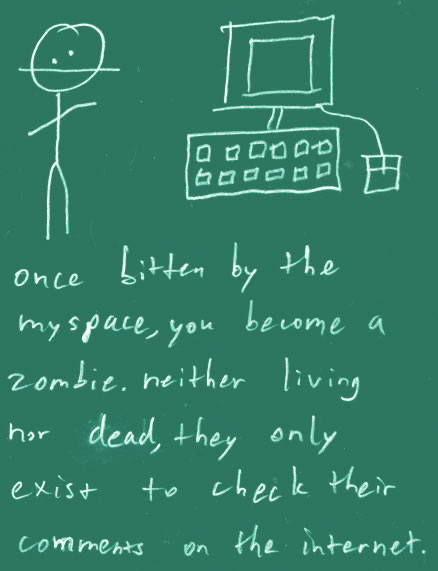 once bitten by the
myspace, you become a
zombie. neither living
nor dead, they only
exist to check their
comments on the internet.